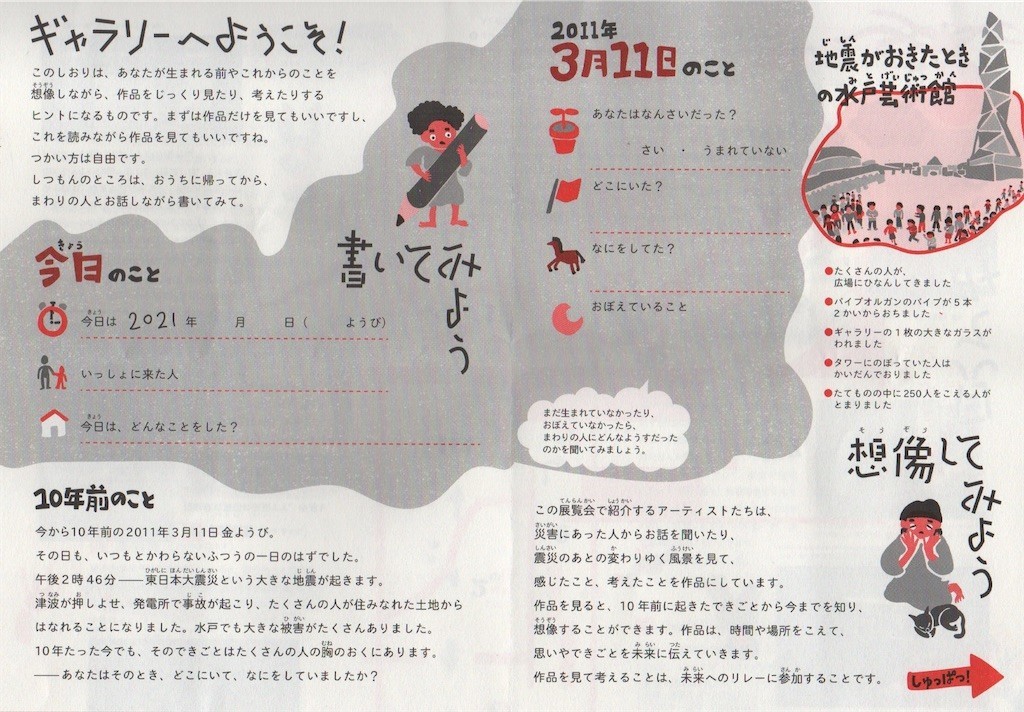 ギャラリーへようこそ！
このしおりは、あなたが生まれる前やこれからのことを
想像しながら、作品をじっくり見たり、考えたりする
ヒントになるものです。まずは作品だけを見てもいいですし、
これを読みながら作品を見てもいいですね。
つかい方は自由です。
しつもんのところは、おうちに帰ってから、
まわりの人とお話しながら書いてみて。
書いてみよう
今日のこと
今日は 2021 年 月 日（ ようび）
いっしょに来た人
今日は、どんなことをした？
10年前のこと
今から10年前の2011年3月11日金ようび。
その日も、いつもとかわらないふつうの一日のはずでした。
午後2時46分――東日本大震災という大きな地震が起きます。
津波が押しよせ、発電所で事故が起こり、たくさんの人が住みなれた土地から
はなれることになりました。水戸でも大きな被害がたくさんありました。
10年たった今でも、そのできごとはたくさんの人の胸のおくにあります。
――あなたはそのとき、どこにいて、なにをしていましたか？
2011年
3月11日のこと
あなたはなんさいだった？
さい ・ うまれていない
どこにいた？
なにをしてた？
おぼえていること
まだ生まれていなかったり、
おぼえていなかったら、
まわりの人にどんなようすだった
のかを聞いてみましょう。
地震がおきたとき
の水戸芸術館
●たくさんの人が、
広場にひなんしてきました
●パイプオルガンのパイプが5本
2かいからおちました
●ギャラリーの1枚の大きなガラスが
われました
●タワーにのぼっていた人は
かいだんでおりました
●たてものの中に250人をこえる人が
とまりました
想像してみよう
この展覧会で紹介するアーティストたちは、
災害にあった人からお話を聞いたり、
震災のあとの変わりゆく風景を見て、
感じたこと、考えたことを作品にしています。
作品を見ると、10年前に起きたできごとから今までを知り、
想像することができます。作品は、時間や場所をこえて、
思いやできごとを未来に伝えていきます。
作品を見て考えることは、未来へのリレーに参加することです。
しゅっぱつ！